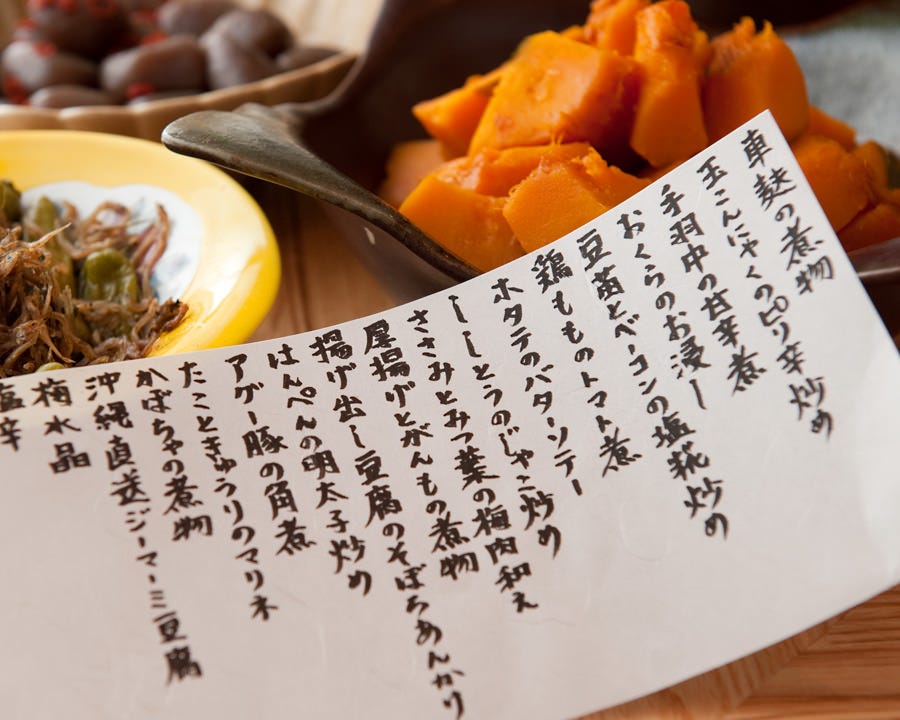 車麩の煮物
玉こんにゃくのピリ辛炒め
手羽中の甘辛煮
おくらのお浸し
豆苗とベーコンの塩糀炒め
鶏もものトマト煮
ホタテのバターソテー
ししとうのじゃこ炒め
ささみとみつ葉の梅肉和え
厚揚げとがんもの煮物
揚げ出し豆腐のそばちあんかり
はんぺんの明太子炒め
アグー豚の角煮
たこときゅうりのマリネ
かぼちゃの煮物
沖縄直送ジーマーミ豆腐
梅水晶
塩辛